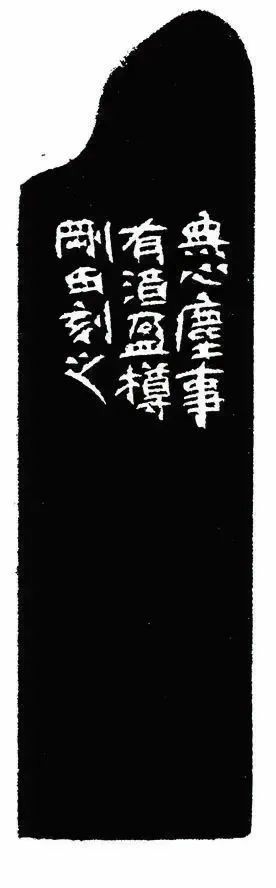 無心塵事
有酒盈樽
剛田刻之